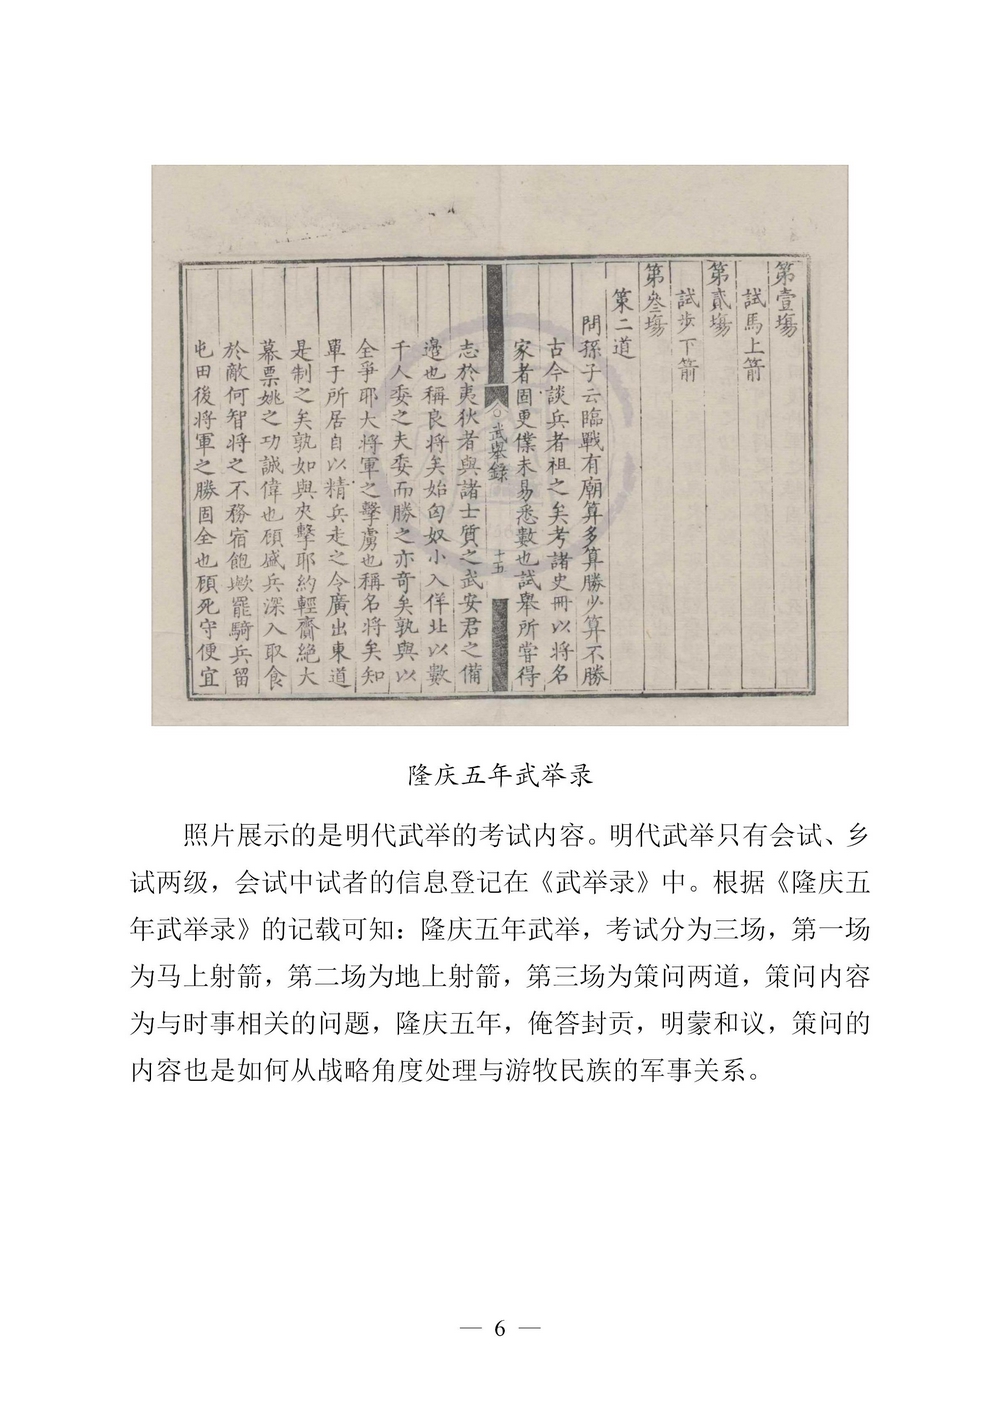 第壹塲
試馬上箭
第貳塲
試步下箭
第叄塲
策二道
問孫子云臨戰有廟算多算勝少算不勝
古今談兵者祖之矣考諸史冊以將名
家者固更僕未易悉數也試舉所嘗得
武舉錄
十五
志於夷狄者與諸士質之武安君之備
邊也稱良將矣始匈奴小入佯北以數
千人委之夫委而勝之亦奇矣孰與以
全爭耶大將軍之擊虜也稱名將矣知
單于所居自以精兵走之令廣出東道
是制之矣孰如與夾擊耶約輕齎絕大
幕票姚之功誠偉也顧慼兵深入取食
於敵何智將之不務宿飽歟罷騎兵留
屯田後將軍之勝固全也頋死守便宜
隆庆五年武举录
照片展示的是明代武举的考试内容。明代武举只有会试、乡
试两级，会试中试者的信息登记在《武举录》中。根据《隆庆五
年武举录》的记载可知：隆庆五年武举，考试分为三场，第一场
为马上射箭，第二场为地上射箭，第三场为策问两道，策问内容
为与时事相关的问题，隆庆五年，俺答封贡，明蒙和议，策问的
内容也是如何从战略角度处理与游牧民族的军事关系。
— 6 —